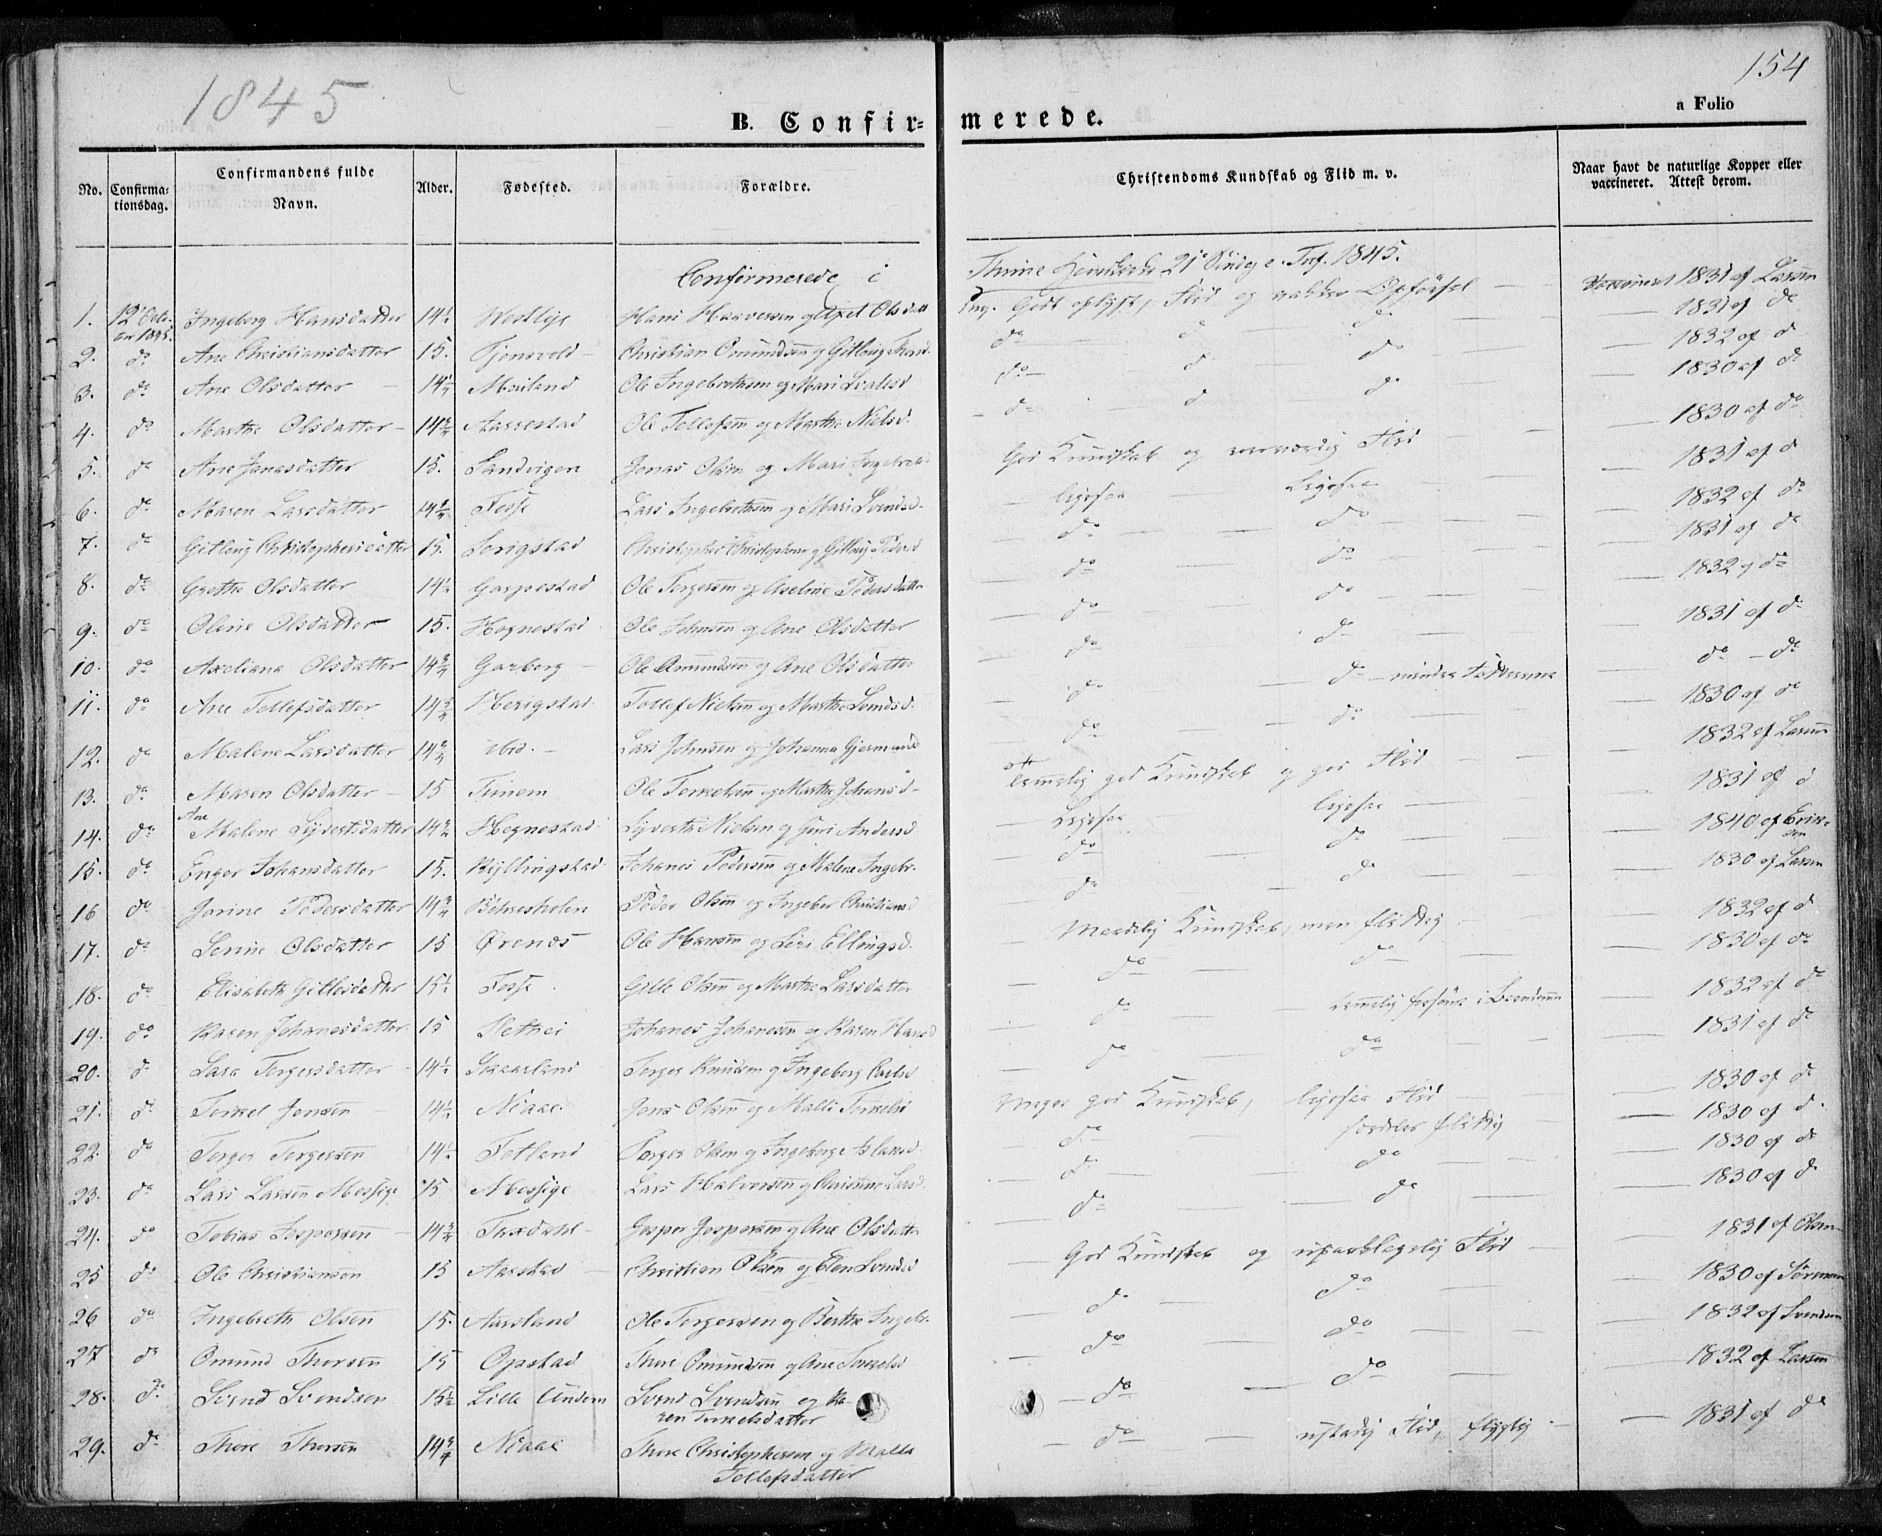 1845
154
B. Confirmerede.
a Folio
No.
Confirmationsdag.
Confirmandens fulde Navn.
Alder.
Fødested.
Forældre.
Christendoms Kundskab og Flid m. v.
Naar havt de naturlige Kopper eller vaccineret. Attest derom.
Confirmerede i Thime 21de Sindg e. Trf. 1845.
1. 12te Octo- 1845. Ingeborg Hansdatter 14½ Hans Haaversen og Olsdatt Godt oplyst, Flid og vakker Opførsel — Vaccineret 1831 af Larsen
2. do Ane Christiansdatter 15. Tjensvold Christian Omundsen og Gitlaug do d do — 1831 af do
3. do Ane Olsdatter 14½ Meiland Ole Ingebrethsen og Mari do d do — 1832 af d
4. do Marthe Olsdatter 14¾ Aarrestad Ole Tollefsen og Marthe Nielsd. do d do — 1830 af do
5. do Ane Janasdatter 15. Sandvigen Jonas Olsen og Mari God Kundskab og Flid — 1830 af do
6. do Maren Larsdatter 14¾ Fosse Lars Ingebrethsen og Mari Svendsd. ligesaa ligesaa — 1831 af d
7. do Gitlaug Christophersdatter 15. Serigstad Christopher Christophersen og Gitlaug Pedersd do do — 1832 af do
8. do Grethe Olsdatter 14½ Garpestad Ole Torgersen og Aseline Pedersdatter do do — 1831 af do
9. do Oline Olsdatter 15. Hognestad Ole Johnsen og Ane Olsdatter do do — 1832 af do
10. do Axeliana Olsdatter 14¾ Garborg Ole Omundsen og Ane Olsdatter do do — 1831 af do
11. do Ane Tollefsdatter 14¾ Herigstad Tollef Nielsen og Marthe Svendsd. do do — mindre — do — do
12. do Malene Larsdatter 14¾ ibd. Lars Johnsen og Johanna do do — 1830 af do
13. do Maren Olsdatter 15 Tunem Ole Torkelsen og Marthe Johansd. temmelig god Kundskab og god Flid — 1832 af Larsen
14. do Ane Malene Syvertsdatter 14¾ Hognestad Syverth Nielsen og Guri Andersd Ligesaa ligesaa — 1831 af d
15. do Enger Johansdatter 15. Byllingstad Johanes Pedersen og Malene Ingebr. do do — 1840 af Eriksen
16 do Jorine Pedersdatter 14¾ Peder Olsen og Ingebor Christiansd do do — 1830 af Larsen
17. do Serine Olsdatter 15 Ørenes Ole Hansen og Siri Ellingsd. Maadelig Kundskab, men flittig — 1832 af d
18. do Elisabeth Gitlesdatter 15½ Fosse Gitle Olsen og Marthe Larsdatter do do — 1830 af do
19. do Karen Johanesdatter 15 Netthei Johanes Johanesen og Karen Hansd do — 1832 af do
20. do Sara Torgersdatter 14½ Skaarland Torger Knudsen og Ingeborg Carlsd do do — 1831 af do
21. do Torkel Jonsen 14½ Niaae Jons Olsen og Malli Torkelsd Meget god Kundskab, ligesaa Flid — 1830 af do
22. do Torger Torgersen 14½ Fotland Torger Olsen og Ingeborge Aslaksd do særdeles flittig — 1830 af d.
23. do Lars Larsen Mossige 15 Mossige Lars Halversen og Christine Larsd. do do — 1830 af do
24. do Tobias Jespersen 14¾ Thxdahl Jesper Jespersen og Ane Olsdatter do do — 1830 af do
25 do Ole Christiansen 15 Aarstad Christian Olsen og Elen Svendsd God Kundskab og upaaklagelig Flid — 1831 af Olsen
26 do Ingebreth Olsen 15. Aarsland Ole Torgersen og Berthe Ingebr. do do — 1830 af Sørensen
27 do Omund Thorsen 15 Opstad Thore Omundsen og Ane Torkelsd do do — 1832 af Svendsen
28. do Svend Svendsen 15½ Lille Undem Svend Svendsen og Karen Torkelsdatter do do — 1832 af Larsen
29. do Thore Thorsen 14¾ Niaae Thore Christophersen og Malla Tollefsdatter do ustadig Flid, flygtig — 1831 af do